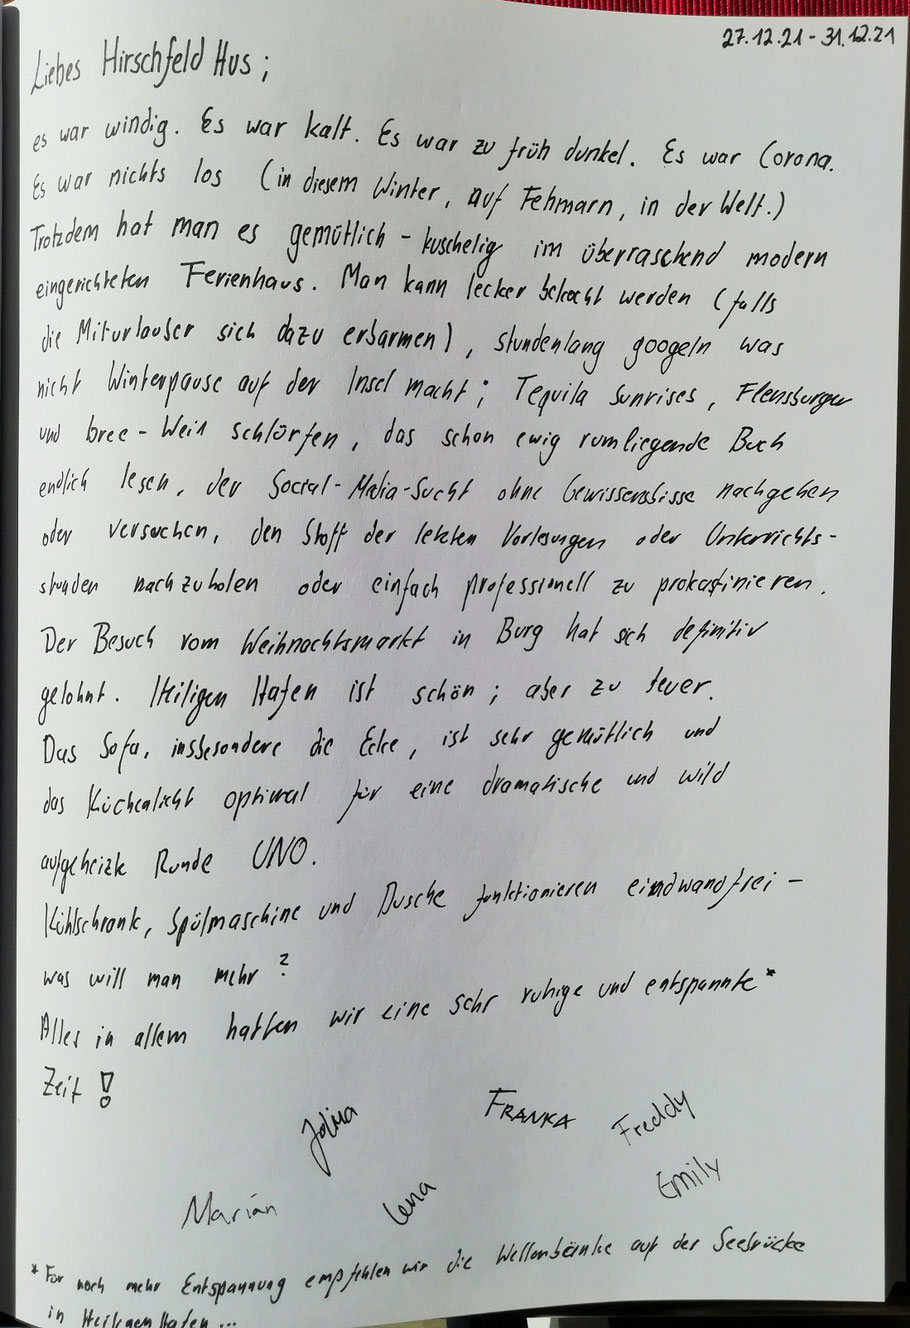 27.12.21 - 31.12.21
Liebes Hirschfeld Hus;
es war windig. Es war kalt. Es war zu früh dunkel. Es war Corona.
Es war nichts los (in diesem Winter, auf Fehmarn, in der Welt.)
Trotzdem hat man es gemütlich - kuschelig im überraschend modern
eingerichteten Ferienhaus. Man kann lecker bekocht werden (falls
die Miturlauber sich dazu erbarmen), stundenlang googeln was
nicht Winterpause auf der Insel macht; Tequila Sunrises, Flensburger
und bree - Wein schlürfen, das schon ewig rumliegende Buch
endlich lesen, der Social-Media-Sucht ohne Gewissensbisse nachgehen
oder versuchen, den Stoff der letzten Vorlesungen oder Unterrichts-
stunden nachzuholen oder einfach professionell zu prokastinieren.
Der Besuch vom Weihnachtsmarkt in Burg hat sich definitiv
gelohnt. Heiligen Hafen ist schön; aber zu teuer.
Das Sofa, insbesondere die Ecke, ist sehr gemütlich und
das Küchenlicht optimal für eine dramatische und wild
aufgeheizte Runde UNO.
Kühlschrank, Spülmaschine und Dusche funktionieren eindwandfrei -
was will man mehr?
Alles in allem hatten wir eine sehr ruhige und entspannte*
Zeit!
Jolina FRANKA Freddy
Marián Lena Emily
* Für noch mehr Entspannung empfehlen wir die Wellenbänke auf der Seebrücke
in Heiligen Hafen...